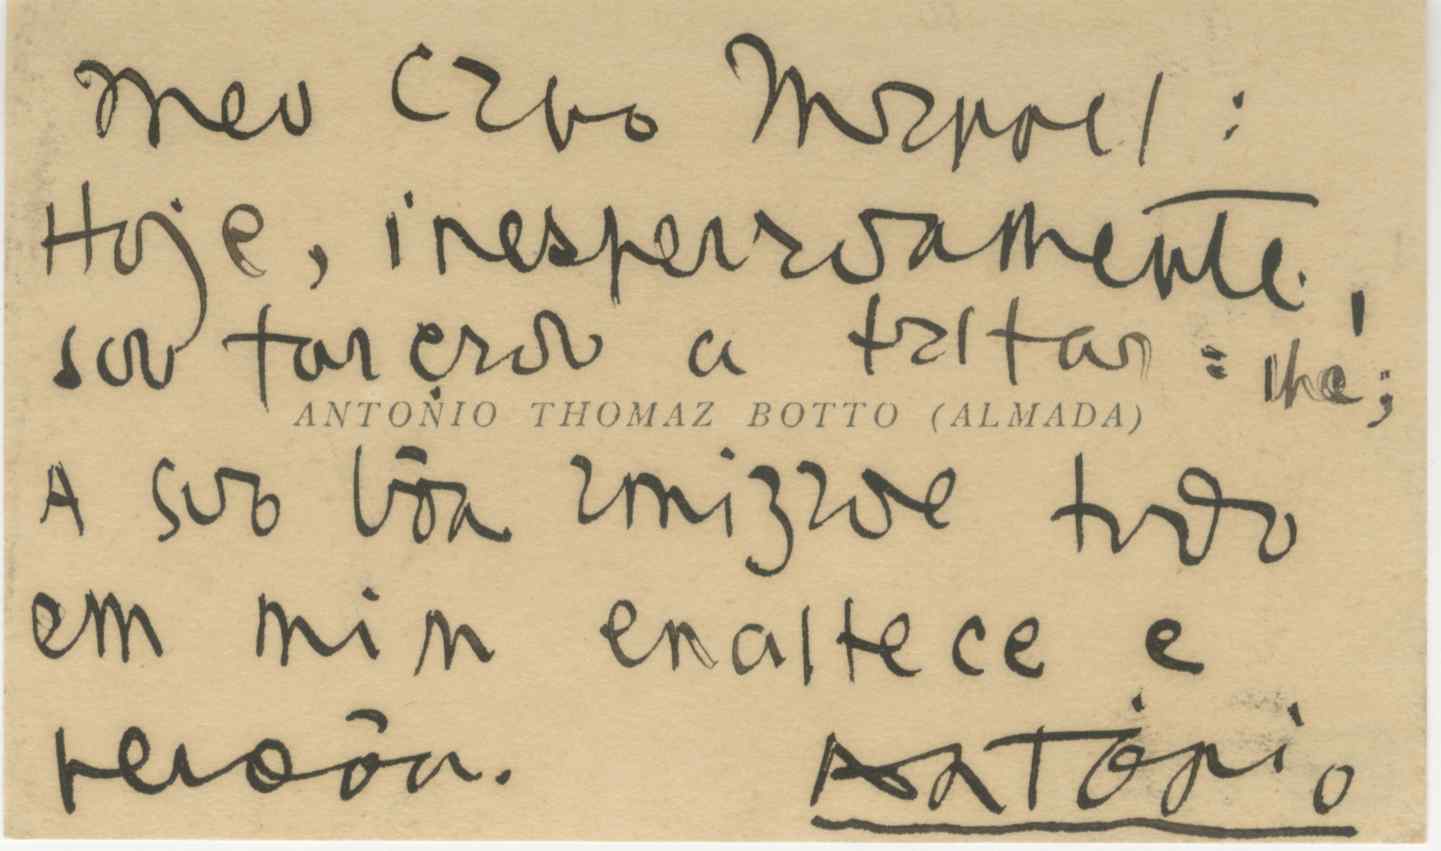 Meu caro Manoel:
Hoje, inesperadamente,
sou forçado a faltar-lhe;
ANTONIO THOMAZ BOTTO (ALMADA)
A sua bôa amizade tudo
em mim enaltece e
perdôa. António